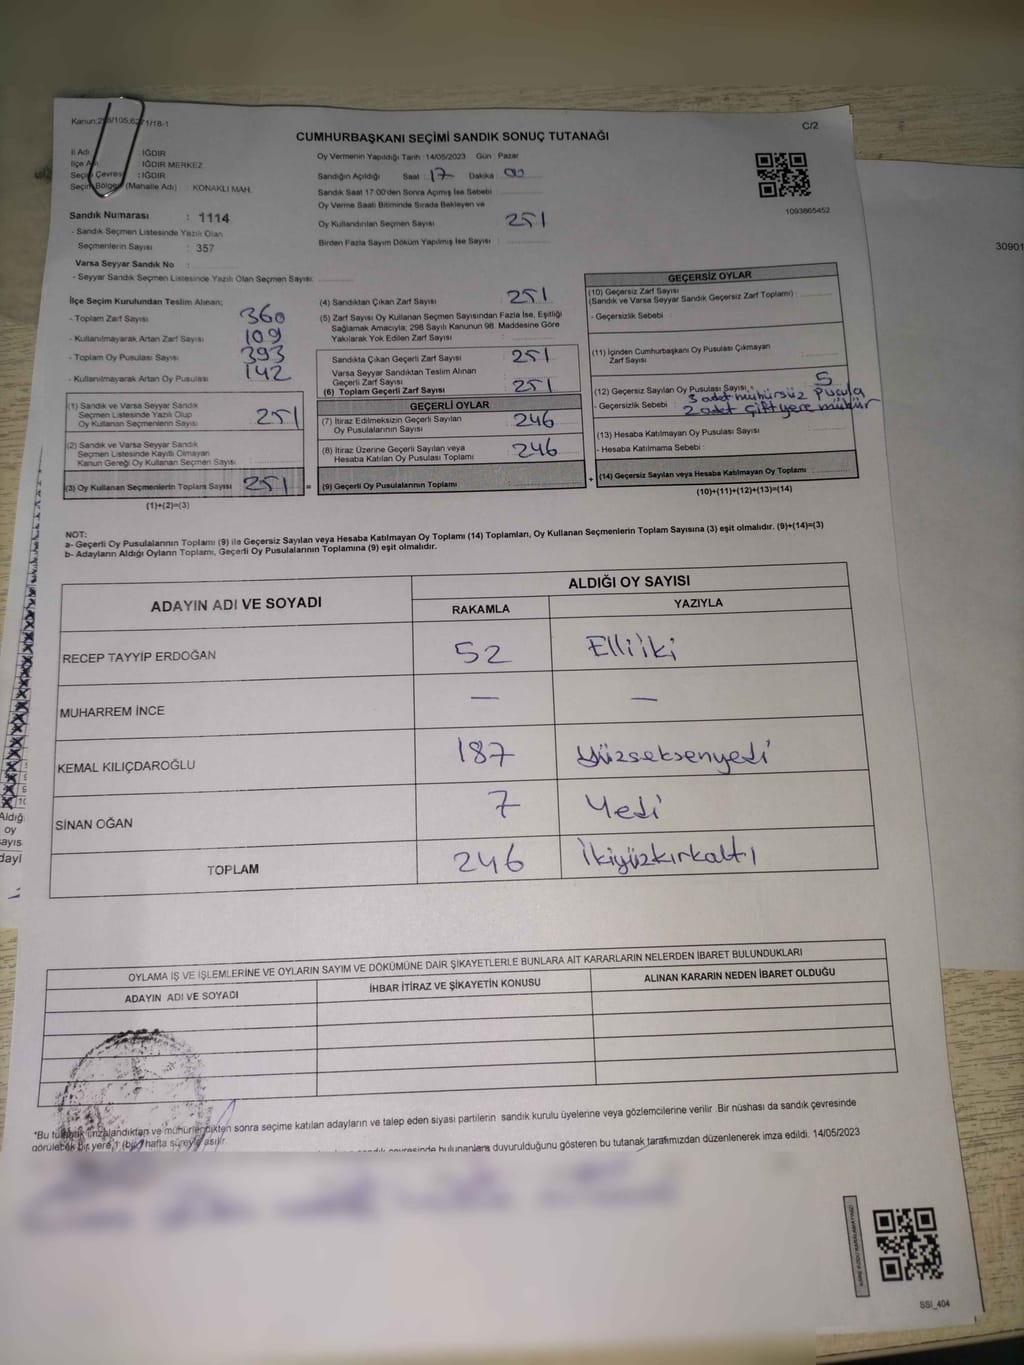 C/2
CUMHURBAŞKANI SEÇİMİ SANDIK SONUÇ TUTANAĞI
İl Adı : IĞDIR
: IĞDIR MERKEZ
Çevresi : IĞDIR
Seçim Bölgesi (Mahalle Adı) : KONAKLI MAH.
Sandık Numarası : 1114
- Sandık Seçmen Listesinde Yazılı Olan
Seçmenlerin Sayısı : 357
Varsa Seyyar Sandık No :
- Seyyar Sandık Seçmen Listesinde Yazılı Olan Seçmen Sayısı:
Oy Vermenin Yapıldığı Tarih :14/05/2023 Gün : Pazar
Sandığın Açıldığı Saat : 17 Dakika : 00
Sandık Saat 17:00'den Sonra Açımış İse Sebebi :
Oy Verme Saati Bitiminde Sırada Bekleyen ve
Oy Kullandırılan Seçmen Sayısı : 251
Birden Fazla Sayım Döküm Yapılmış İse Sayısı :
1093865452
30901
İlçe Seçim Kurulundan Teslim Alınan;
- Toplam Zarf Sayısı 360
- Kullanılmayarak Artan Zarf Sayısı 109
- Toplam Oy Pusulası Sayısı 393
- Kullanılmayarak Artan Oy Pusulası 142
(1) Sandık ve Varsa Seyyar Sandık
Seçmen Listesinde Yazılı Olup
Oy Kullanan Seçmenlerin Sayısı 251
(2) Sandık ve Varsa Seyyar Sandık
Seçmen Listesinde Kayıtlı Olmayan
Kanun Gereği Oy Kullanan Seçmen Sayısı
(3) Oy Kullanan Seçmenlerin Toplam Sayısı 251 =
(1)+(2)=(3)
(4) Sandıktan Çıkan Zarf Sayısı 251
(5) Zarf Sayısı Oy Kullanan Seçmen Sayısından Fazla İse, Eşitliği
Sağlamak Amacıyla; 298 Sayılı Kanunun 98. Maddesine Göre
Yakılarak Yok Edilen Zarf Sayısı :
Sandıkta Çıkan Geçerli Zarf Sayısı 251
Varsa Seyyar Sandıktan Teslim Alınan
Geçerli Zarf Sayısı
(6) Toplam Geçerli Zarf Sayısı 251
GEÇERLİ OYLAR
(7) İtiraz Edilmeksizin Geçerli Sayılan
Oy Pusulalarının Sayısı 246
(8) İtiraz Üzerine Geçerli Sayılan veya
Hesaba Katılan Oy Pusulası Toplamı 246
(9) Geçerli Oy Pusulalarının Toplamı +
GEÇERSİZ OYLAR
(10) Geçersiz Zarf Sayısı
(Sandık ve Varsa Seyyar Sandık Geçersiz Zarf Toplamı) :
- Geçersizlik Sebebi :
(11) İçinden Cumhurbaşkanı Oy Pusulası Çıkmayan
Zarf Sayısı
(12) Geçersiz Sayılan Oy Pusulası Sayısı : 5
- Geçersizlik Sebebi : 3 adet mühürsüz pusula
2 adet çift yere mühür
(13) Hesaba Katılmayan Oy Pusulası Sayısı
- Hesaba Katılmama Sebebi :
(14) Geçersiz Sayılan veya Hesaba Katılmayan Oy Toplamı
(10)+(11)+(12)+(13)=(14)
NOT:
a- Geçerli Oy Pusulalarının Toplamı (9) ile Geçersiz Sayılan veya Hesaba Katılmayan Oy Toplamı (14) Toplamları, Oy Kullanan Seçmenlerin Toplam Sayısına (3) eşit olmalıdır. (9)+(14)=(3)
b- Adayların Aldığı Oyların Toplamı, Geçerli Oy Pusulalarının Toplamına (9) eşit olmalıdır.
ADAYIN ADI VE SOYADI ALDIĞI OY SAYISI
RAKAMLA YAZIYLA
RECEP TAYYİP ERDOĞAN 52 Elliiki
MUHARREM İNCE — —
KEMAL KILIÇDAROĞLU 187 Yüzseksenyedi
SİNAN OĞAN 7 Yedi
TOPLAM 246 İkiyüzkırkaltı
OYLAMA İŞ VE İŞLEMLERİNE VE OYLARIN SAYIM VE DÖKÜMÜNE DAİR ŞİKAYETLERLE BUNLARA AİT KARARLARIN NELERDEN İBARET BULUNDUKLARI
ADAYIN ADI VE SOYADI İHBAR İTİRAZ VE ŞİKAYETİN KONUSU ALINAN KARARIN NEDEN İBARET OLDUĞU
*Bu tutanak imzalandıktan ve mühürlendikten sonra seçime katılan adayların ve talep eden siyasi partilerin sandık kurulu üyelerine veya gözlemcilerine verilir. Bir nüshası da sandık çevresinde
görülebilecek bir yere 1 (bir) hafta süreyle asılır.
sandık çevresinde bulunanlara duyurulduğunu gösteren bu tutanak tarafımızdan düzenlenerek imza edildi. 14/05/2023
SSI_404